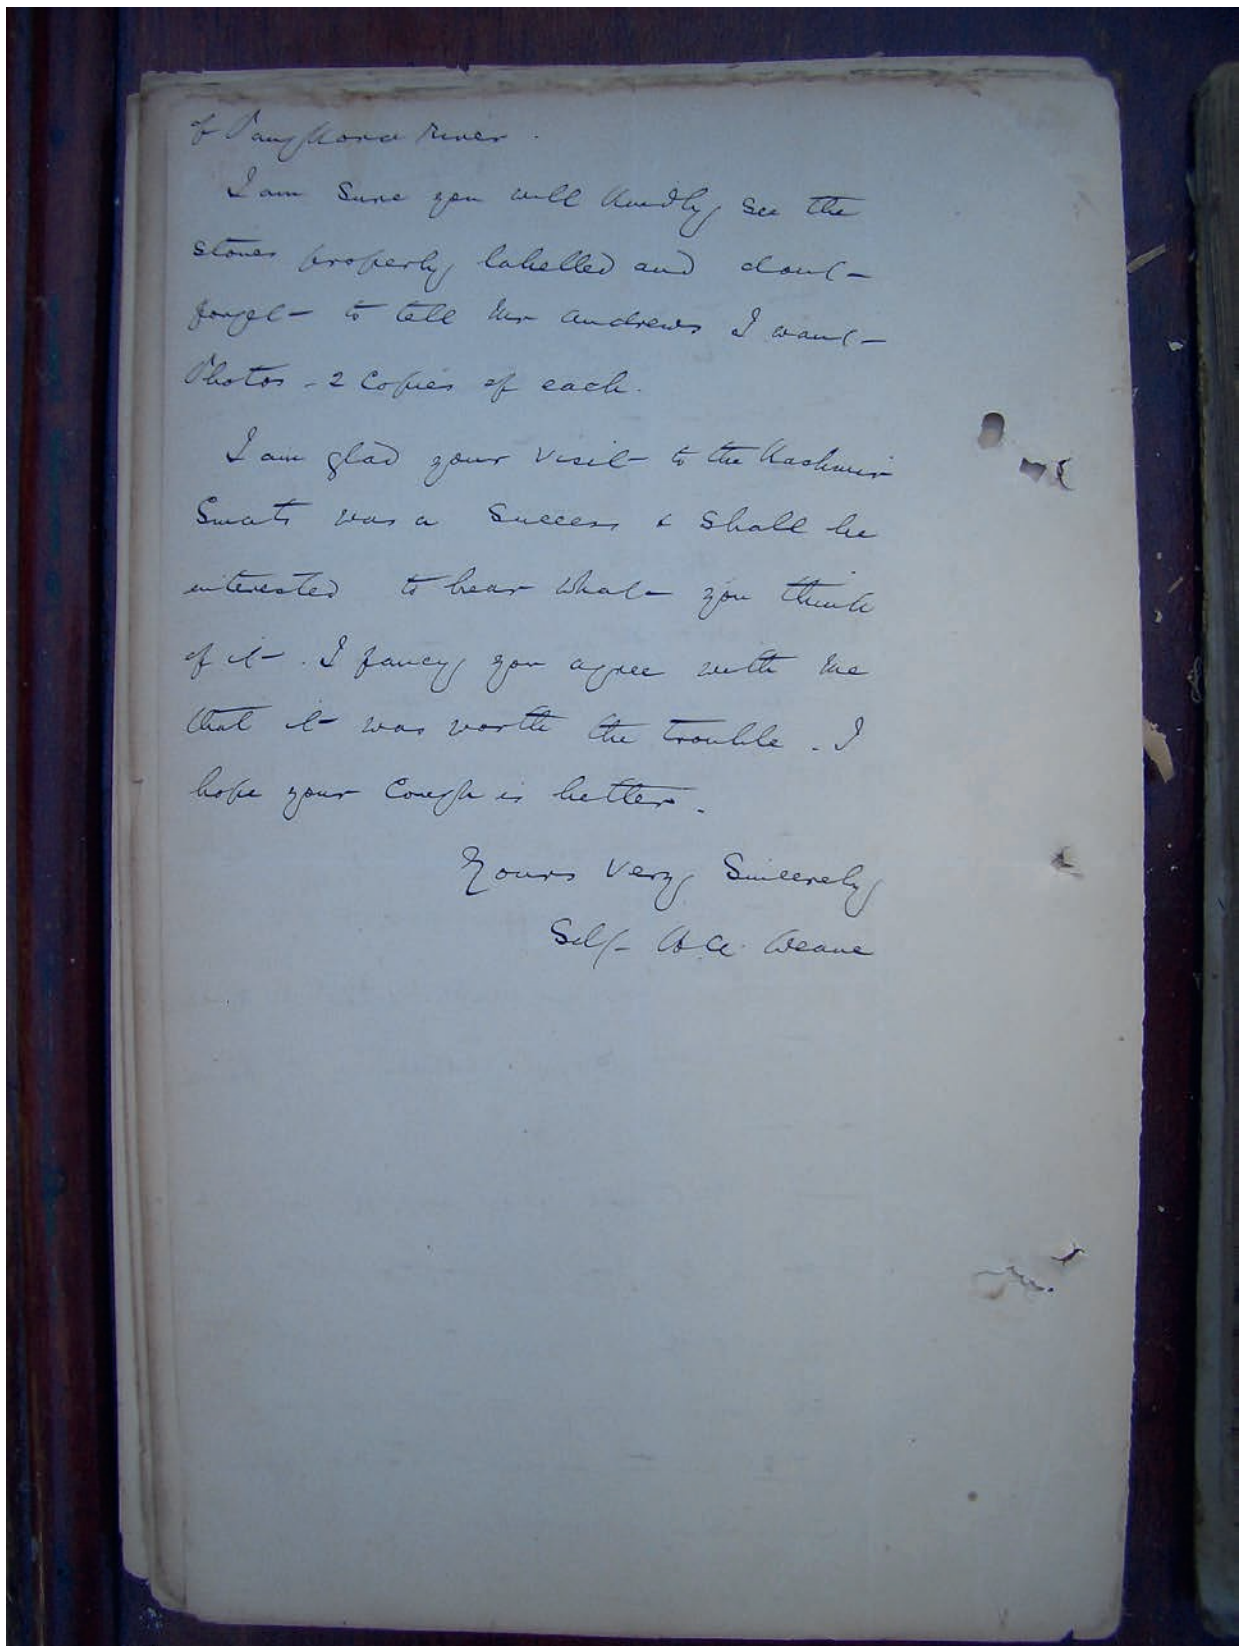 of Panjkora River.
I am sure you will kindly see the
stones properly labelled and dont
forget to tell Mr Andrews I want
Photos - 2 Copies of each.
I am glad your visit to the Kashmir
Smats was a success & shall be
interested to hear what you think
of it. I fancy you agree with me
that it was worth the trouble. I
hope your cough is better.
Yours very sincerely
H.A. Deane